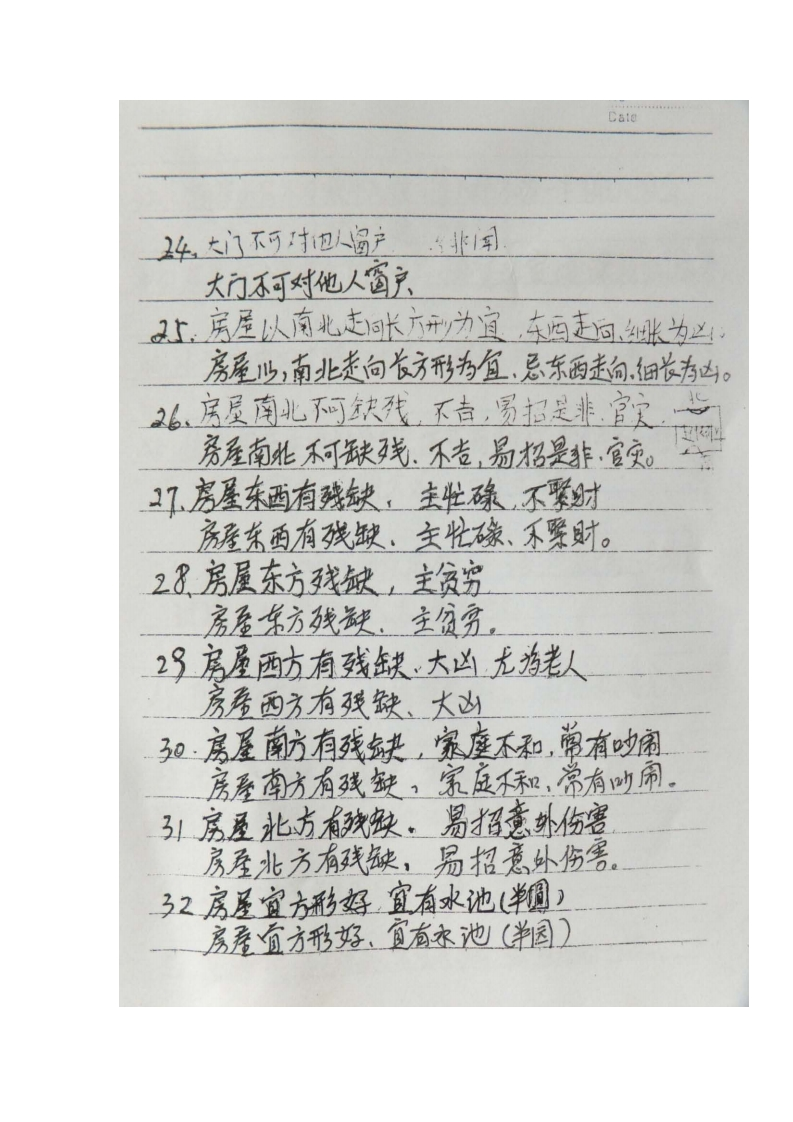 Date
24、大门不可对他人窗户 非闻
大门不可对他人窗户、
25、房屋以南北走向长方形为宜、东西走向、细长为凶。
房屋以,南北走向长方形为宜、忌东西走向、细长为凶。
26、房屋南北不可缺残,不吉,易招是非.官灾.
北
房屋南北不可缺残、不吉,易招是非.官灾。
27、房屋东西有残缺,主忙碌,不聚财
房屋东西有残缺、主忙碌、不聚财。
28、房屋东方残缺,主贫穷
房屋东方残缺、主贫穷。
29 房屋西方有残缺、大凶 尤为老人
房屋西方有残缺、大凶
30.房屋南方有残缺,家庭不和,常有吵闹
房屋南方有残缺,家庭不和,常有吵闹。
31 房屋北方有残缺.易招意外伤害
房屋北方有残缺,易招意外伤害。
32 房屋宜方形好,宜有水池(半圆)
房屋宜方形好、宜有水池(半园)